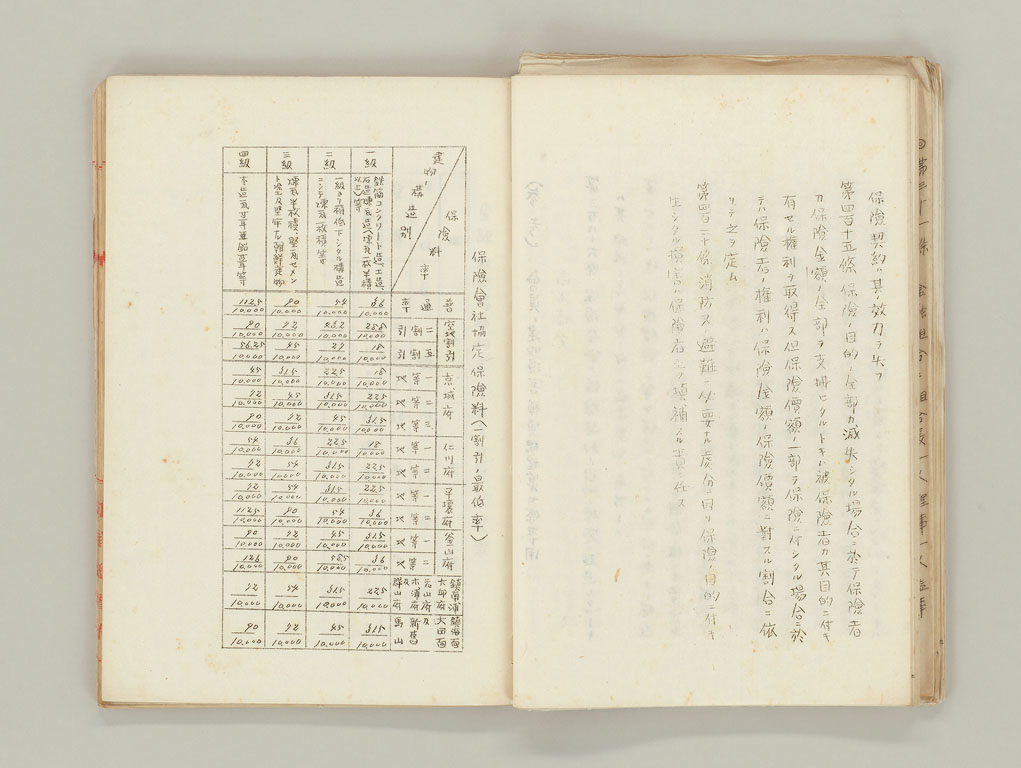 保險契約ハ其ノ效力ヲ失フ
第四百十五條 保險ノ目的ノ全部カ滅失シタル場合ニ於テ保險者
カ保險金額ノ全部ヲ支拂ヒタルトキハ被保險者カ其目的ニ付キ
有セル權利ヲ取得ス但保險價額ノ一部ヲ保險ニ付シタル場合ニ於
テハ保險者ノ權利ハ保險金額ノ保險價額ニ對スル割合ニ依
リテ之ヲ定ム
第四百二十條 消防又ハ避難ニ必要ナル處分ニ因リ保險ノ目的ニ付キ
生シタル損害ハ保險者之ヲ填補スル責ニ任ス
保險會社協定保險料(一割引ノ最低率)
保險料率
建物ノ構造別
普通率
空地割引
二割引
五割引
京城府
一等地
二等地
三等地
仁川府
一等地
二等地
平壤府
一等地
二等地
釜山府
一等地
二等地
鎮南浦
大邱府
元山府
木浦府及
群山府
鎮海面
大田面
及
新舊
馬山
一級
鉄筋コンクリート造、土造、石造、煉瓦造(煉瓦一枚半積以上)等
36/10,000
28.8/10,000
18/10,000
18/10,000
22.5/10,000
31.5/10,000
18/10,000
22.5/10,000
22.5/10,000
36/10,000
31.5/10,000
36/10,000
22.5/10,000
31.5/10,000
二級
一級ヨリ稍低下シタル構造ニシテ煉瓦一枚積等
54/10,000
43.2/10,000
27/10,000
22.5/10,000
31.5/10,000
45/10,000
22.5/10,000
31.5/10,000
31.5/10,000
54/10,000
45/10,000
58.5/10,000
31.5/10,000
45/10,000
三級
煉瓦半枚積、堅瓦セメント塗及堅牢ナル朝鮮建物
90/10,000
72/10,000
45/10,000
31.5/10,000
45/10,000
72/10,000
36/10,000
54/10,000
54/10,000
90/10,000
72/10,000
90/10,000
54/10,000
72/10,000
四級
木造瓦葺亜鉛葺等
112.5/10,000
90/10,000
56.25/10,000
45/10,000
72/10,000
90/10,000
54/10,000
72/10,000
72/10,000
112.5/10,000
90/10,000
126/10,000
72/10,000
90/10,000